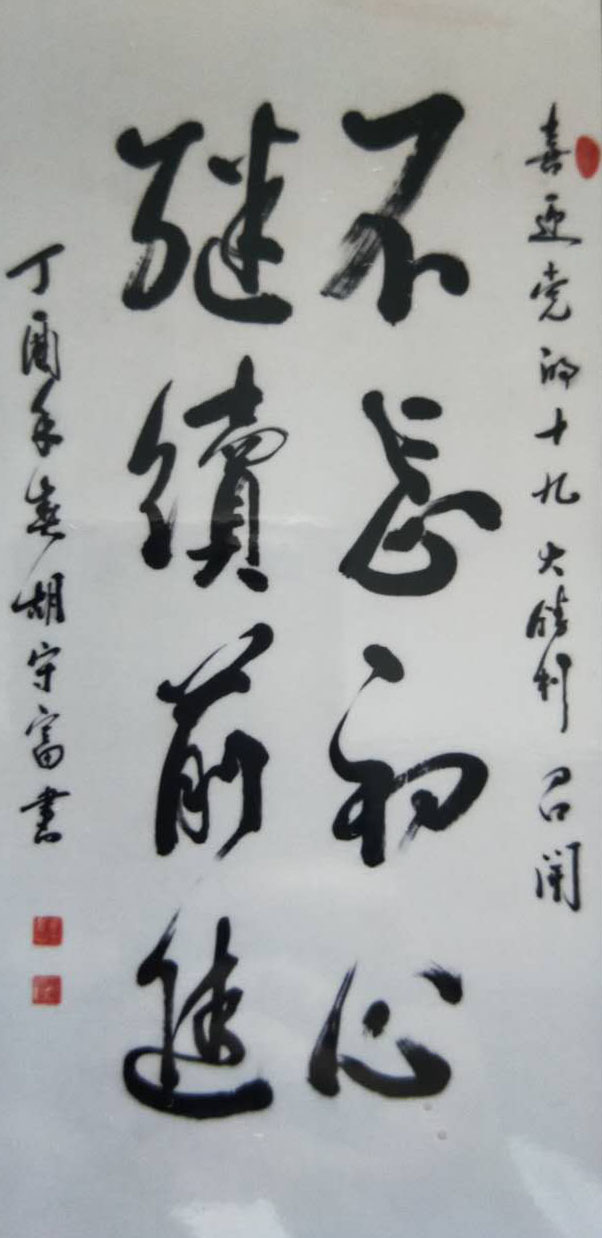 喜迎党的十九大勝利召開
不忘初心
继續前進
丁酉年春胡守富書